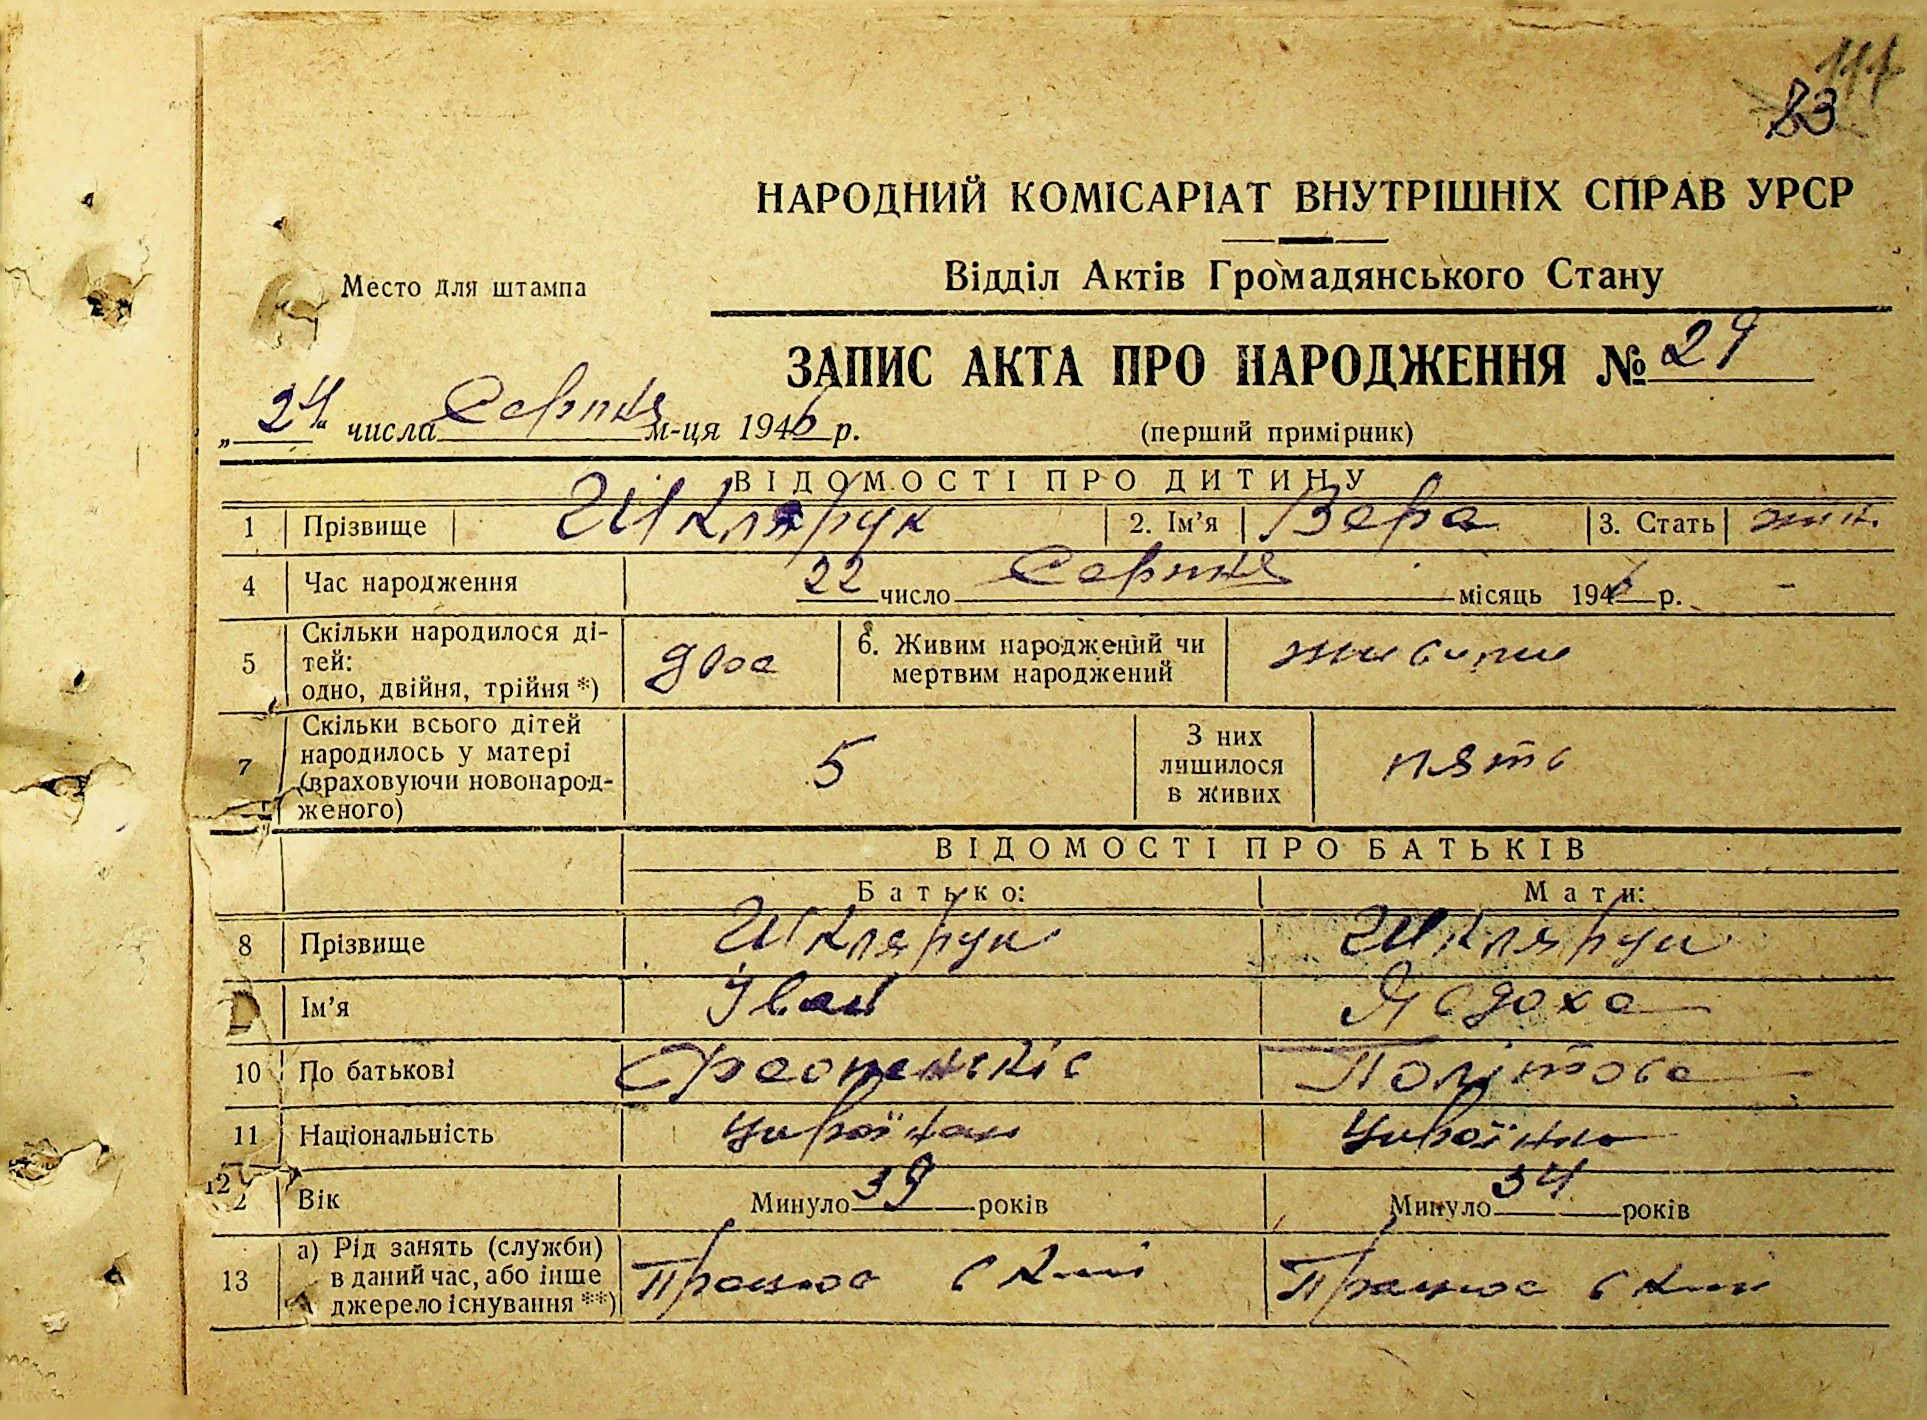 83
НАРОДНИЙ КОМІСАРІАТ ВНУТРІШНІХ СПРАВ УРСР
Відділ Актів Громадянського Стану
Место для штампа
ЗАПИС АКТА ПРО НАРОДЖЕННЯ № 29
„24" числа Серпня м-ця 1946 р.
(перший примірник)
ВІДОМОСТІ ПРО ДИТИНУ
1 Прізвище Шклярук 2. Ім'я Вера 3. Стать жин.
4 Час народження 22 число Серпня місяць 1946 р. -
5 Скільки народилося ді-
тей:
одно, двійня, трійня *) двоє
6. Живим народжений чи
мертвим народжений живими
7 Скільки всього дітей
народилось у матері
(враховуючи новонарод-
женого) 5
З них
лишилося
в живих пять
ВІДОМОСТІ ПРО БАТЬКІВ
Батько: Мати:
8 Прізвище Шклярук Шклярук
Ім'я Іван Явдоха
10 По батькові
11 Національність Україн
12 Вік Минуло 39 років Минуло 34 років
13 а) Рід занять (служби)
в даний час, або інше
джерело існування **) Працює в Працює в